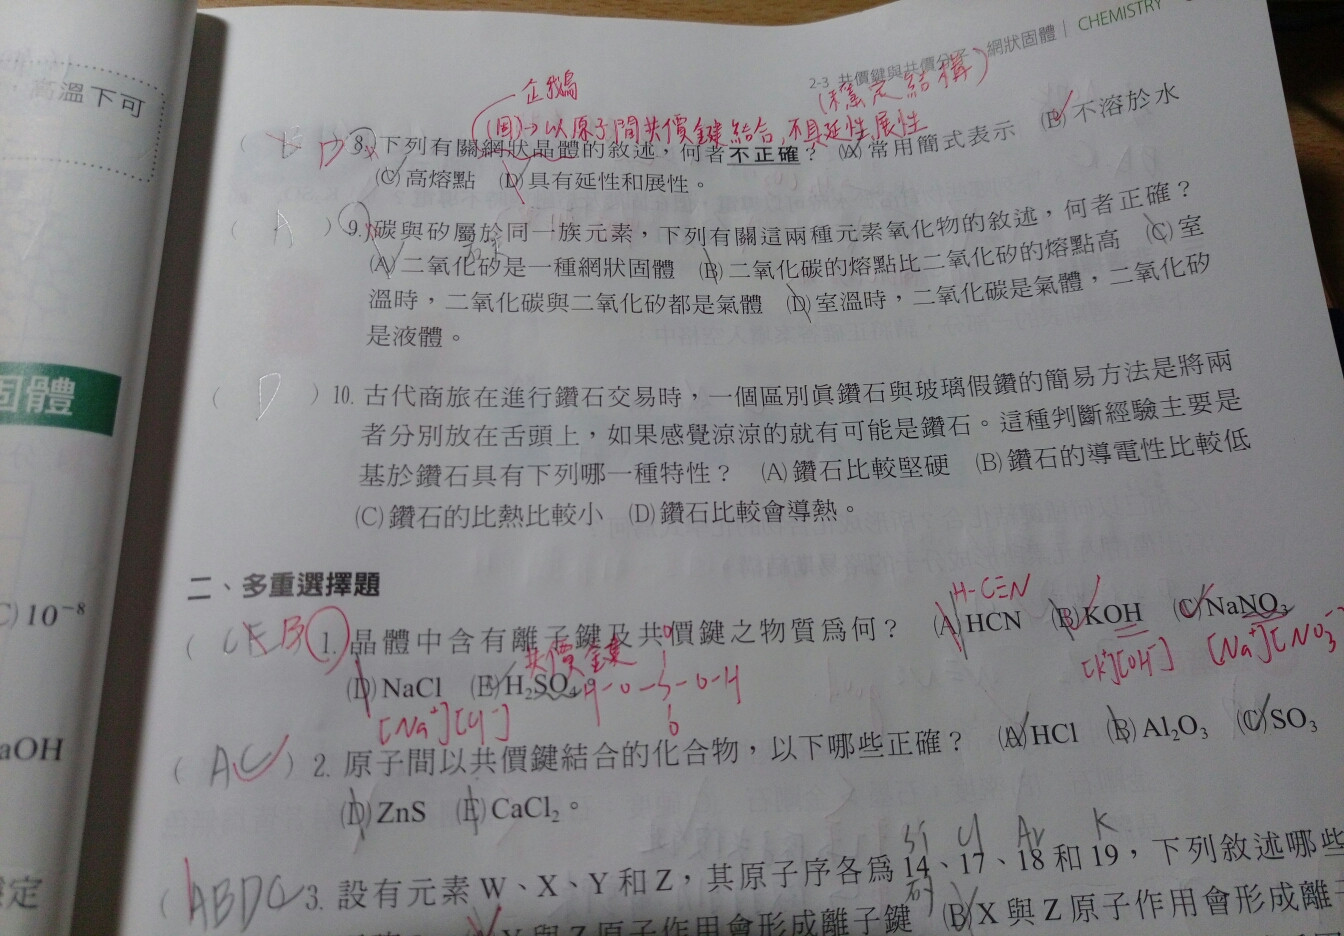 2-3 共價鍵與共價分子、網狀固體 | CHEMISTRY
(網定結構)
企鵝
(固)→以原子間共價鍵結合,不具延性,展性
( D ) 8. 下列有關網狀晶體的敘述,何者不正確? (A)常用簡式表示 (B)不溶於水
(C)高熔點 (D)具有延性和展性。
( A ) 9. 碳與矽屬於同一族元素,下列有關這兩種元素氧化物的敘述,何者正確?
(A)二氧化矽是一種網狀固體 (B)二氧化碳的熔點比二氧化矽的熔點高 (C)室
溫時,二氧化碳與二氧化矽都是氣體 (D)室溫時,二氧化碳是氣體,二氧化矽
是液體。
( D ) 10. 古代商旅在進行鑽石交易時,一個區別真鑽石與玻璃假鑽的簡易方法是將兩
者分別放在舌頭上,如果感覺涼涼的就有可能是鑽石。這種判斷經驗主要是
基於鑽石具有下列哪一種特性? (A)鑽石比較堅硬 (B)鑽石的導電性比較低
(C)鑽石的比熱比較小 (D)鑽石比較會導熱。
二、多重選擇題
H-C≡N
( CEB ) 1. 晶體中含有離子鍵及共價鍵之物質為何? (A)HCN (B)KOH (C)NaNO₃
共價鍵 [K⁺][OH⁻] [Na⁺][NO₃⁻
(D)NaCl (E)H₂SO₄。 H-O-S-O-H
[Na⁺][Cl⁻]
( AC ) 2. 原子間以共價鍵結合的化合物,以下哪些正確? (A)HCl (B)Al₂O₃ (C)SO₃
(D)ZnS (E)CaCl₂。
Si Cl Ar K
( ABDC 3. 設有元素 W、X、Y 和 Z,其原子序各為 14、17、18 和 19,下列敘述哪些
矽
Y與Z原子作用會形成離子鍵 (B)X與Z原子作用會形成離子
高溫下可
固體
C) 10⁻⁸
aOH
定